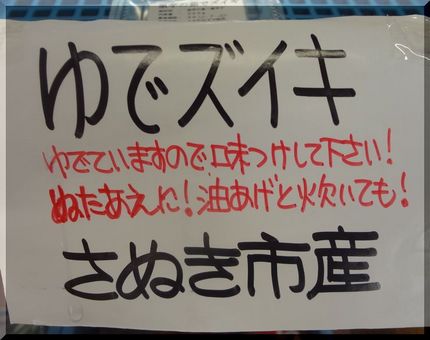 ゆでズイキ
ゆでていますので味つけして下さい！
ぬたあえに！油あげと炊いても！
さぬき市産